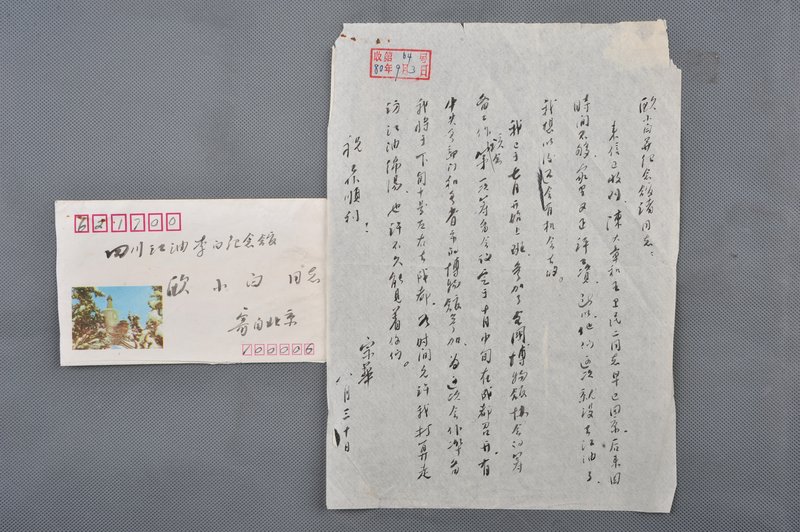 收館 64 号
80年9月3日
欧小白并纪念馆诸同志：
来信已收到，陈大章和王卫民二同志早已回京。后来因
时间不够，家里又正许多项，所以他们这次就没去江油了，
我想以后还会有机会去的。
我已于七月开始上班，参加了全国博物馆协会的筹
备工作，该会第一次筹备会议定于十月中旬在成都召开，有
中央各部门和各省市的博物馆参加，为这次会作准备
我将于下旬十号左右去成都，如时间允许我打算走
访江油、绵阳，也许不久能见着你们。
祝
一切顺利！
宗華
八月三十日
621700
四川江油李白纪念馆
欧小白 同志
寄自北京
100006